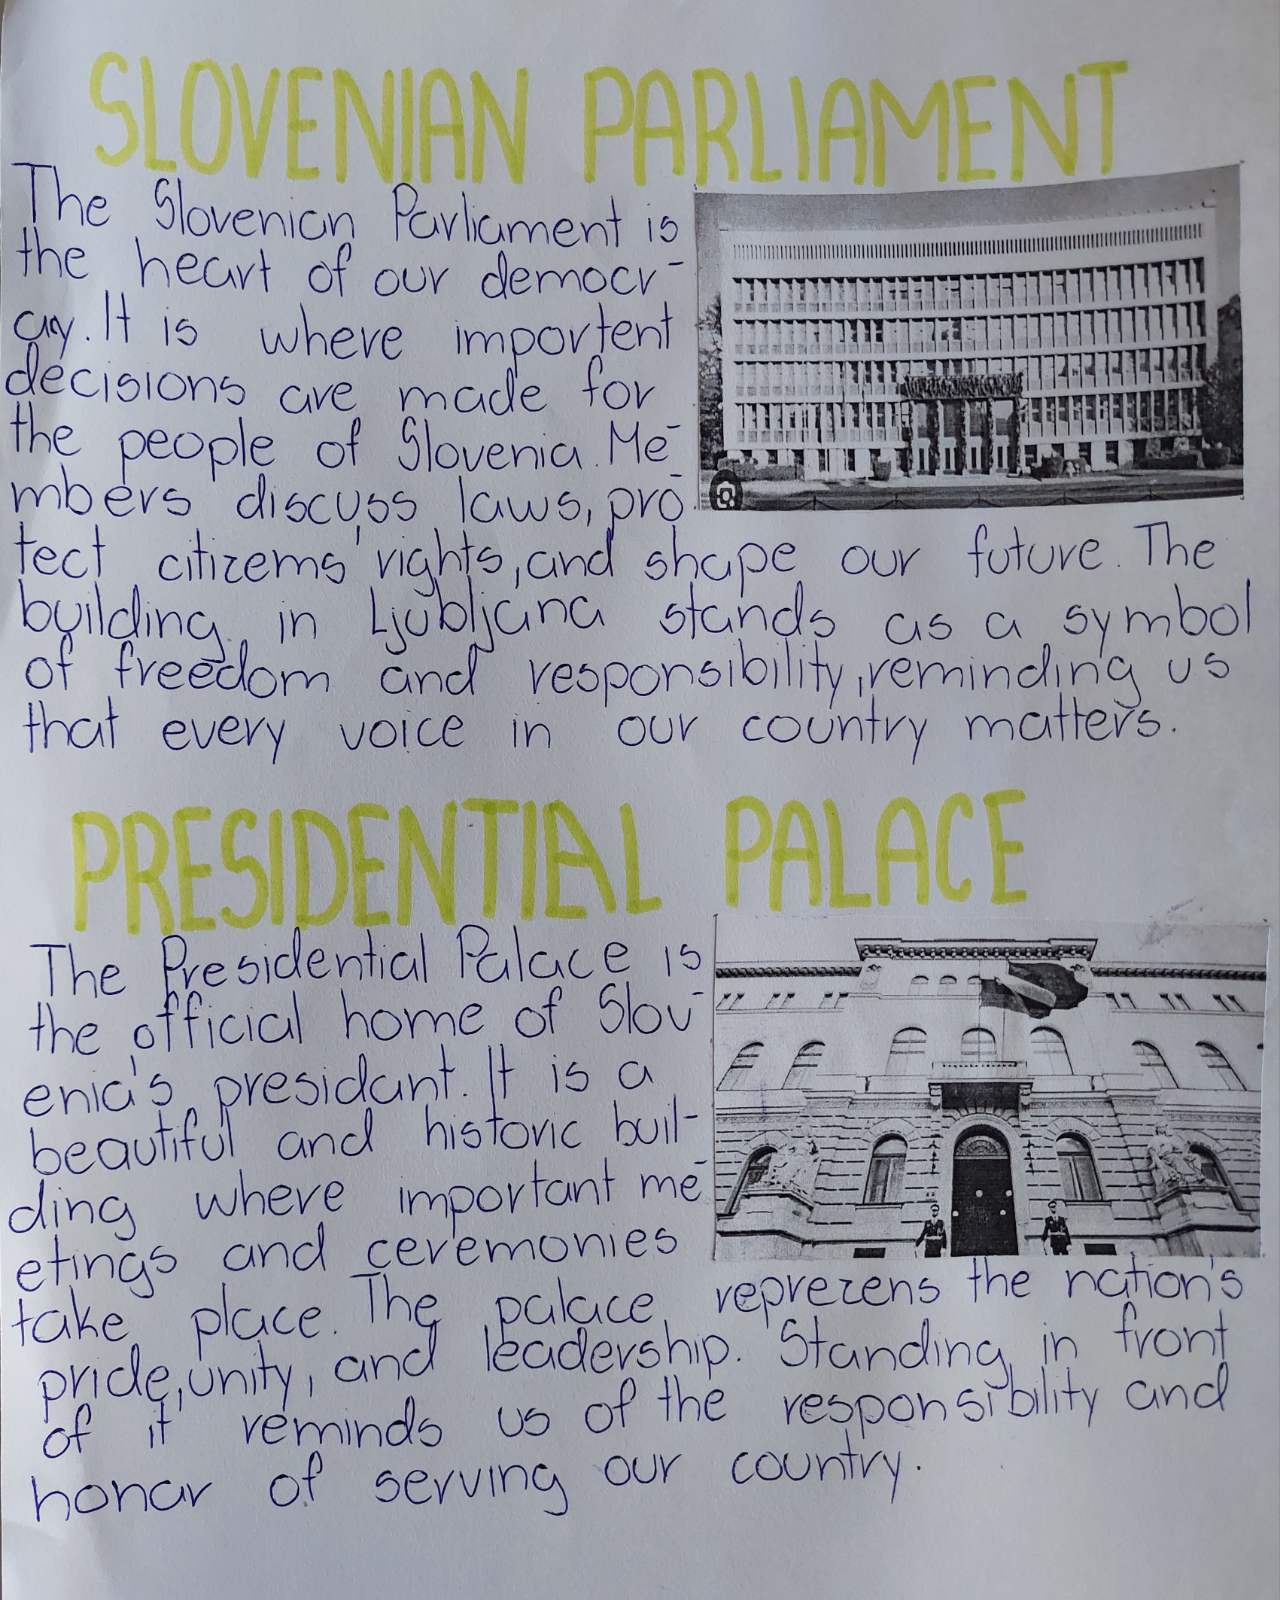 SLOVENIAN PARLIAMENT
The Slovenian Parliament is
the heart of our democr-
acy. It is where importent
decisions are made for
the people of Slovenia. Me-
mbers discuss laws, pro-
tect citizems' rights, and shape our future. The
building in Ljubljana stands as a symbol
of freedom and responsibility, reminding us
that every voice in our country matters.
PRESIDENTIAL PALACE
The Presidential Palace is
the official home of Slov-
enia's presidant. It is a
beautiful and historic buil-
ding where important me-
etings and ceremonies
take place. The palace reprezens the nation's
pride, unity, and leadership. Standing in front
of it reminds us of the responsibility and
honar of serving our country.